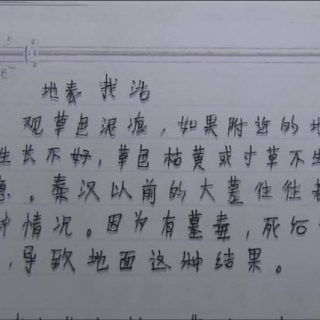 地表找浩
观草色泥痕,如果附近的地
生长不好,草色枯黄或寸草不生
。秦汉以前的大墓往往
种情况。因为有墓毒,死后
,导致地面这种结果。